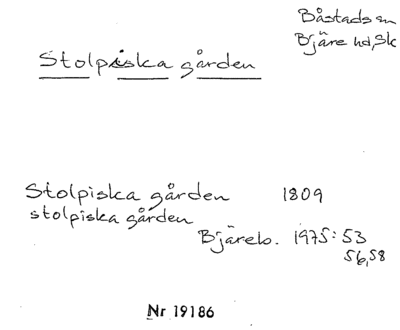 Båstads sn
Bjäre hd, Sk
Stolpiska gården
Stolpiska gården 1809
stolpiska gården
Bjäreb. 1975: 53
56, 58
Nr 19186